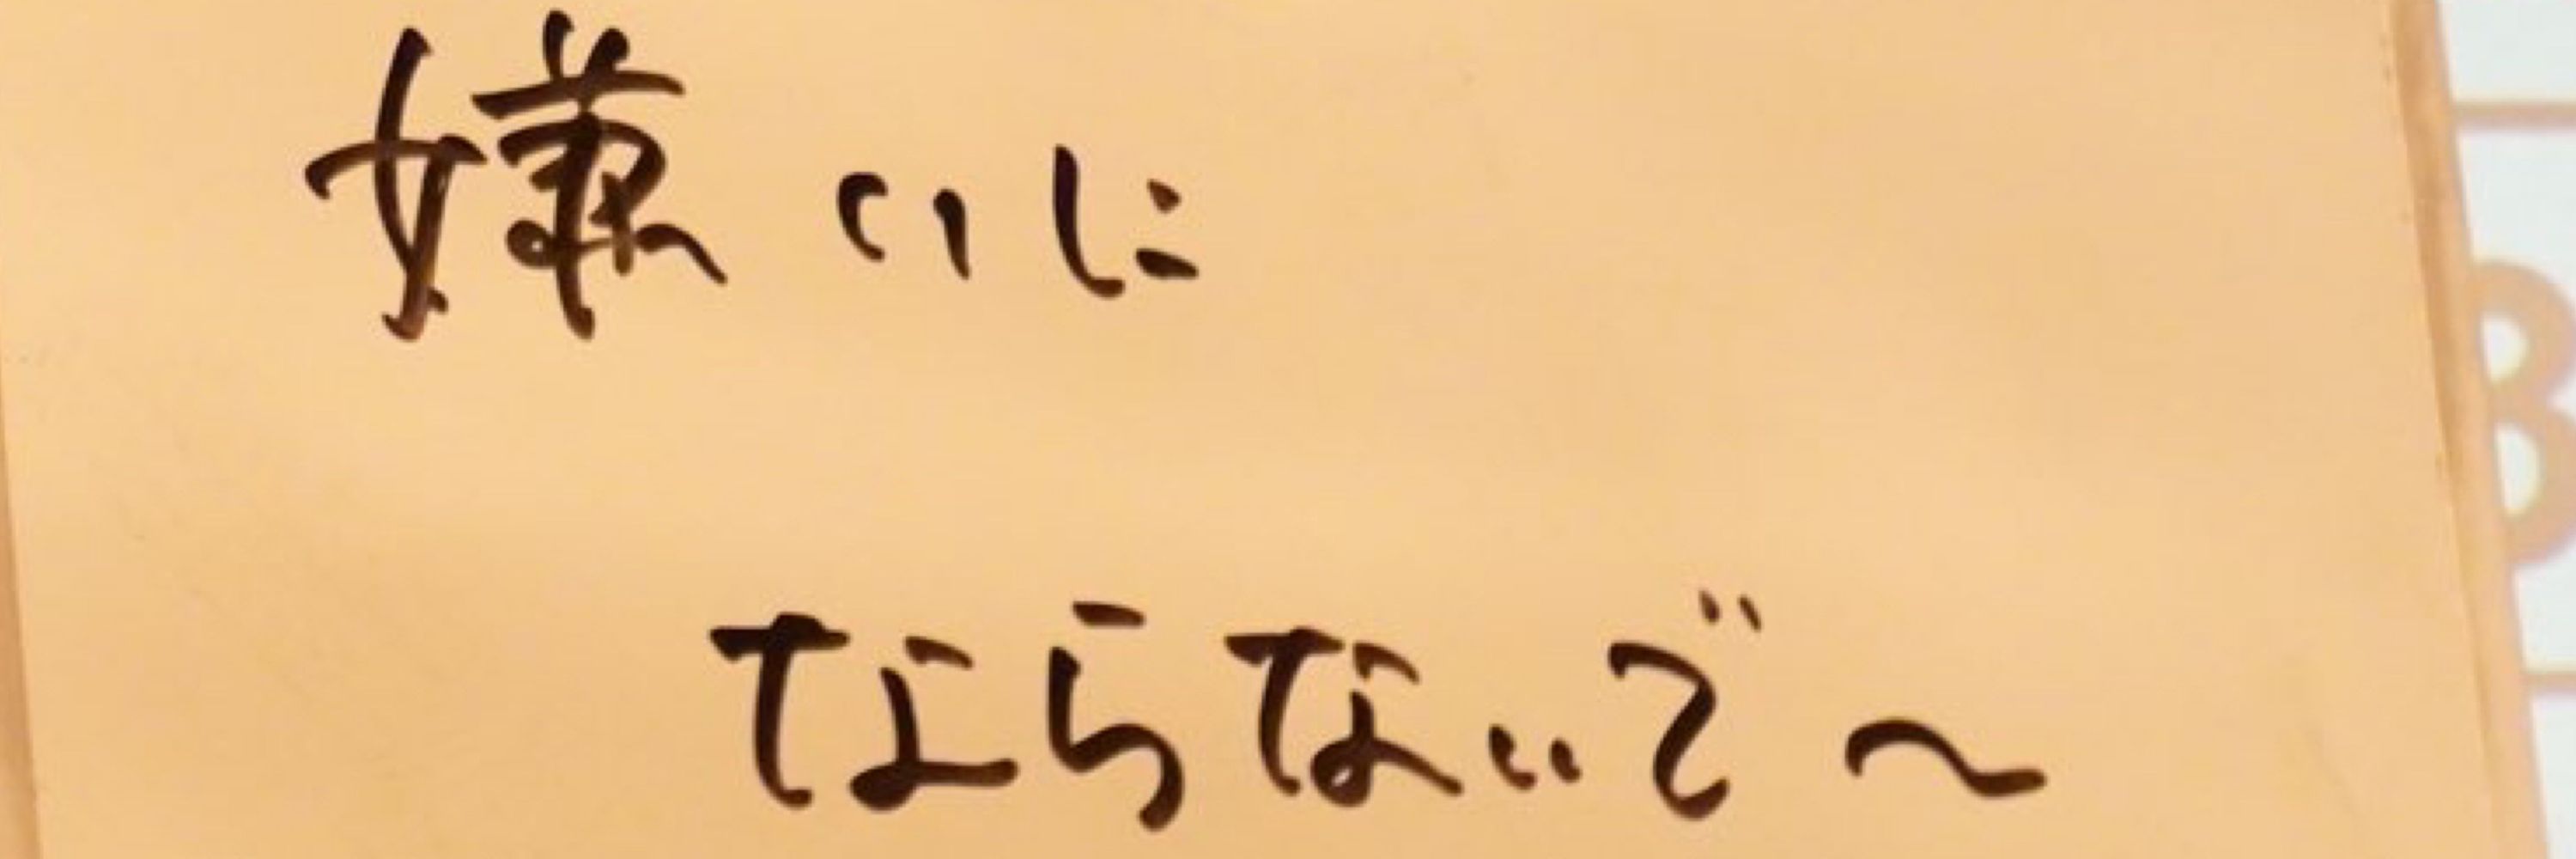 嫌いに
ならないで～